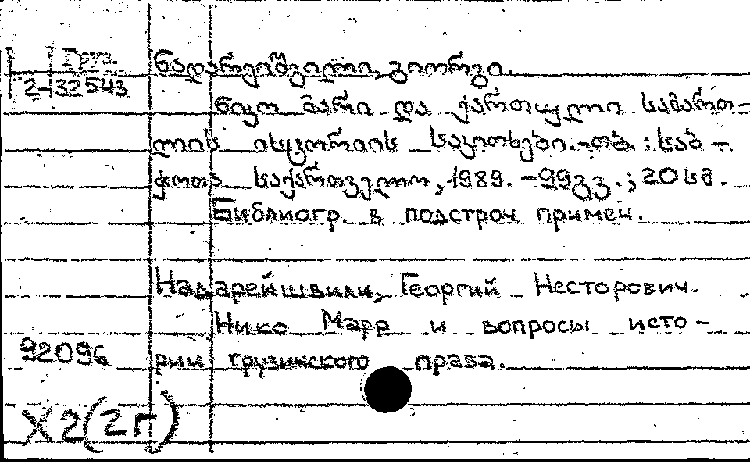 Груз.
2-32543
ნადარეიშვილი, გიორგი.
ნიკო მარი და ქართული სამართ-
ლის ისტორიის საკითხები.-თბ.: საბ-
ჭოთა საქართველო, 1989. -99გვ.; 20 სმ.
Библиогр. в подстроч. примеч.
Надарейшвили, Георгий Несторович.
Нико Марр и вопросы исто-
92096 рии грузинского права.
X2(2Г)